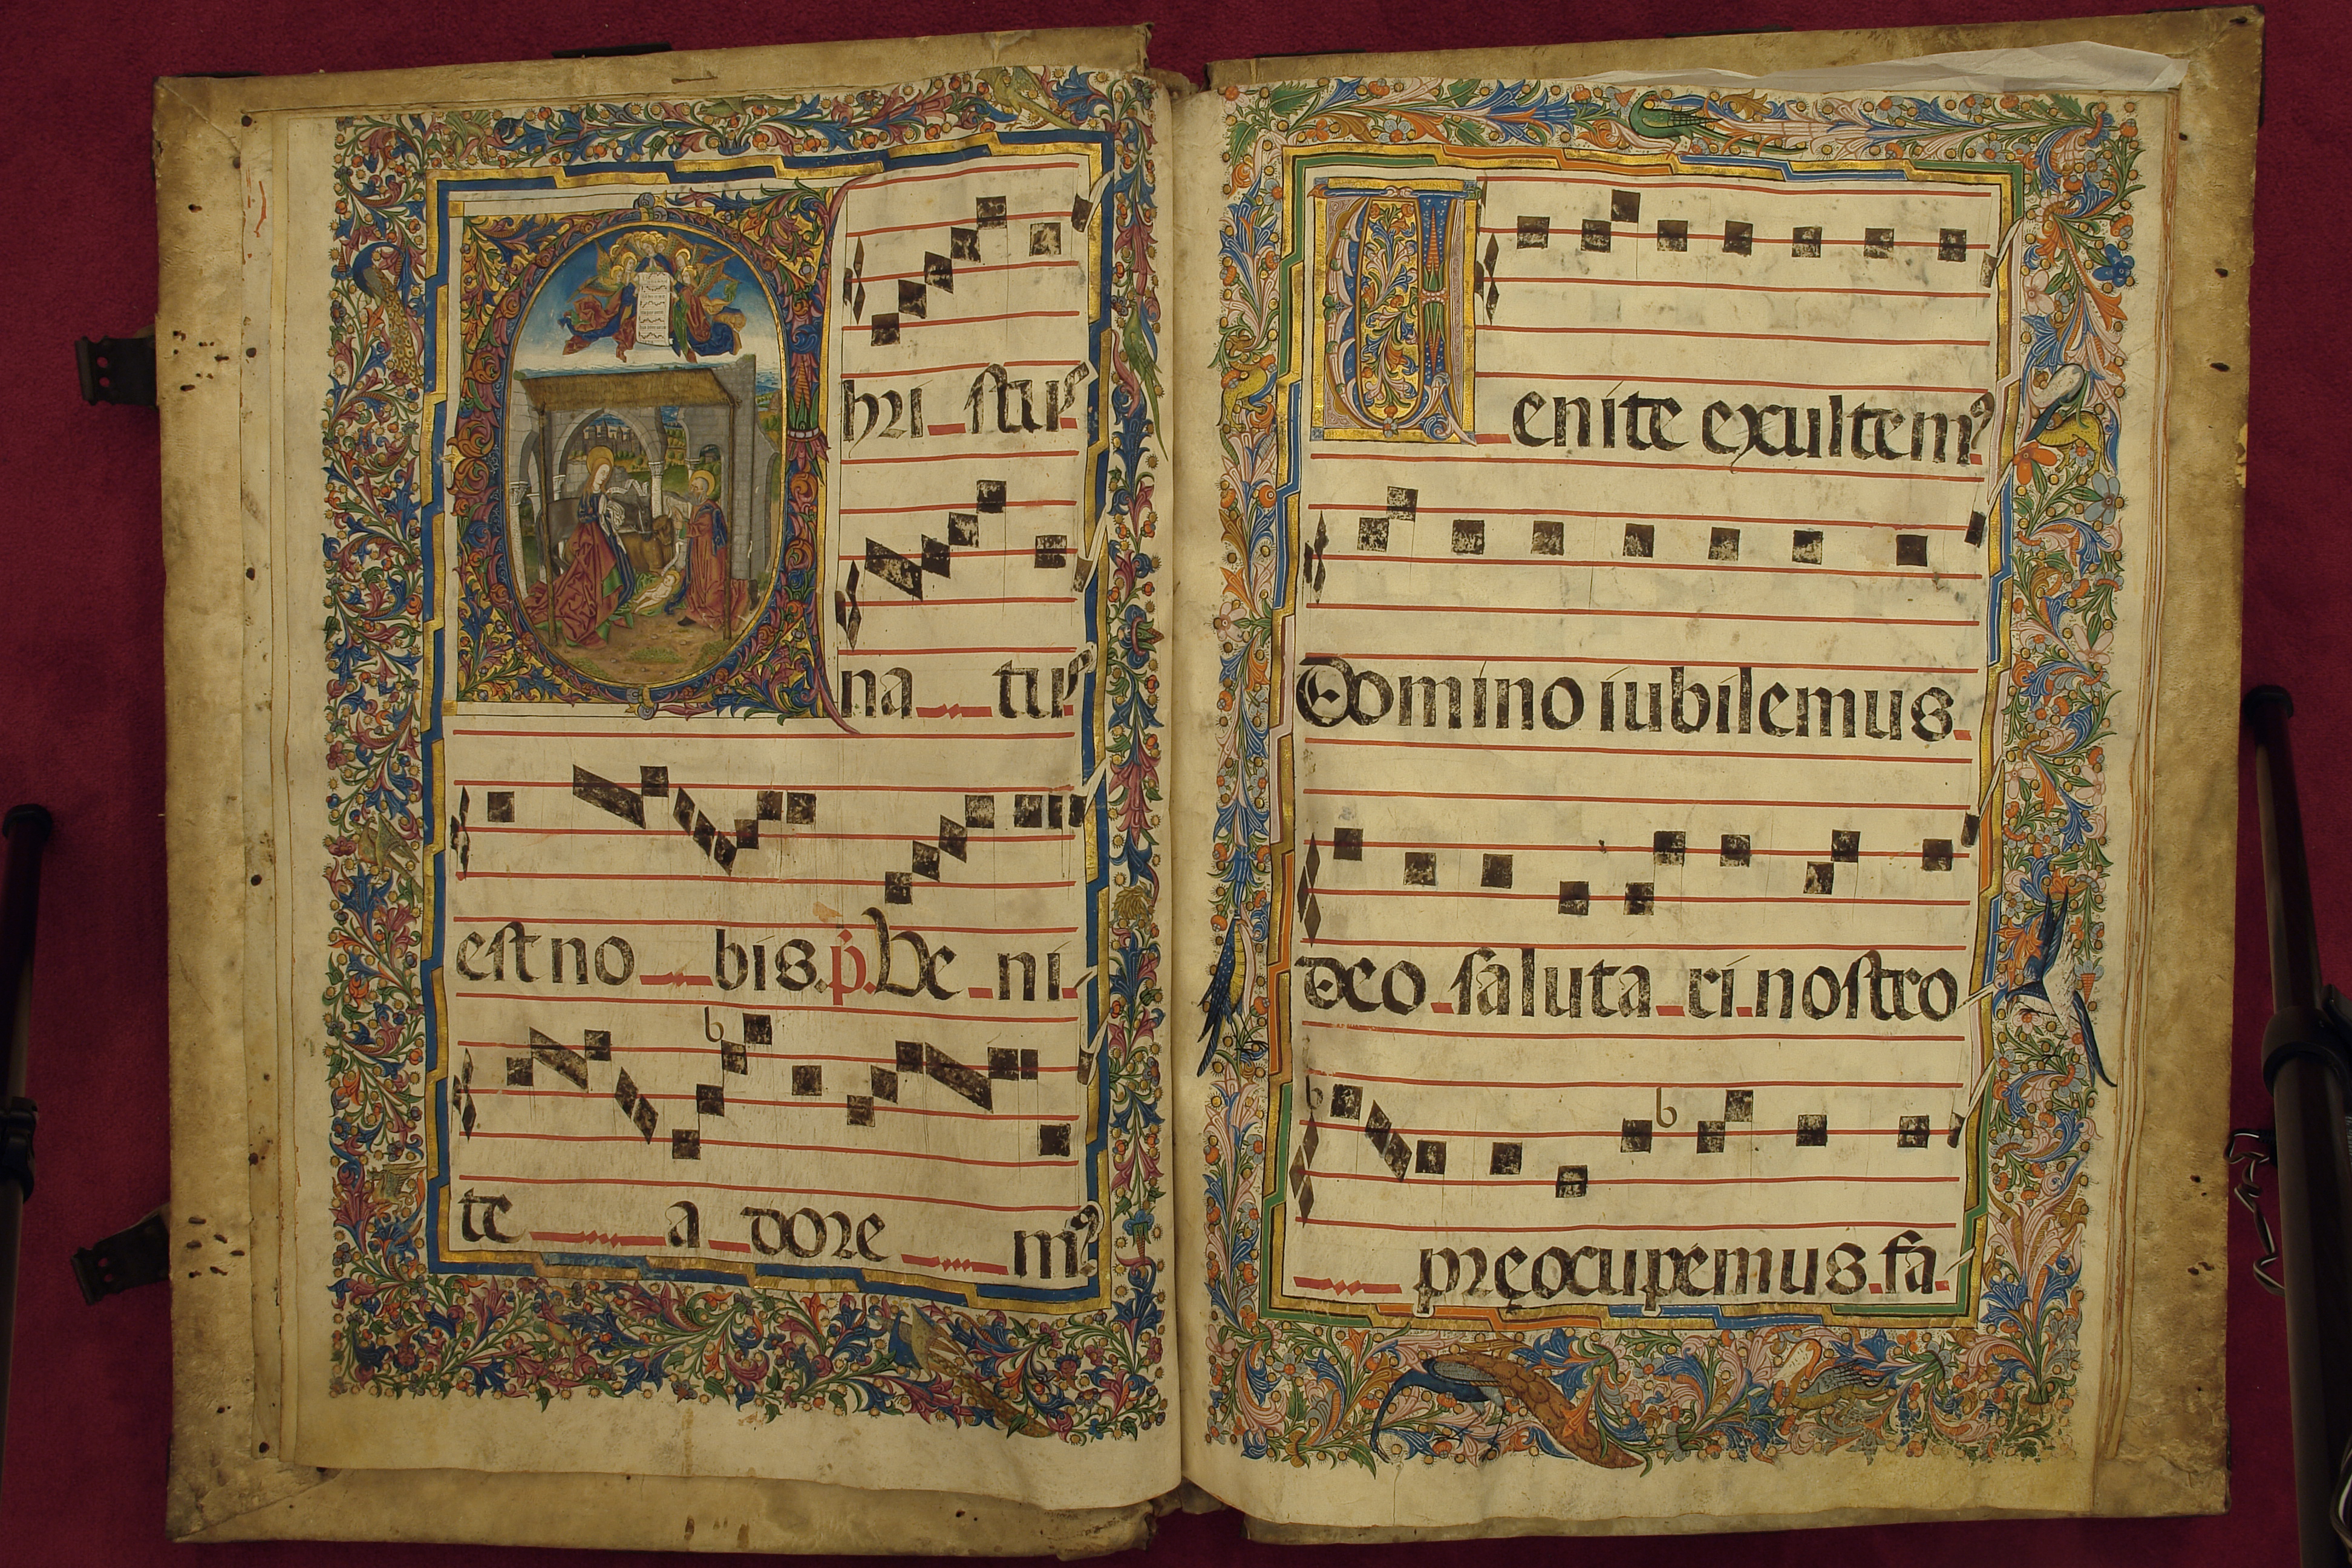 Christus
natus
est no bis. p. Ve ni
te a dore m⁹
Uenite exultem⁹
Domino iubilemus.
deo saluta ri nostro
pręocupemus fa